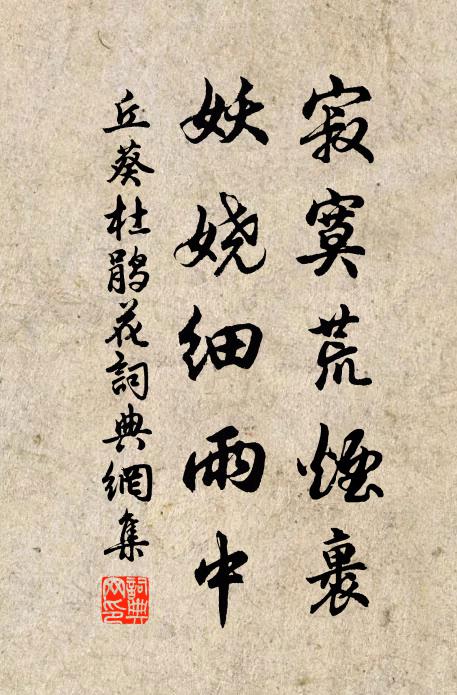 寂寞荒煙裹
妖娆细雨中
丘葵杜鹃花詞典網集
詞典網印